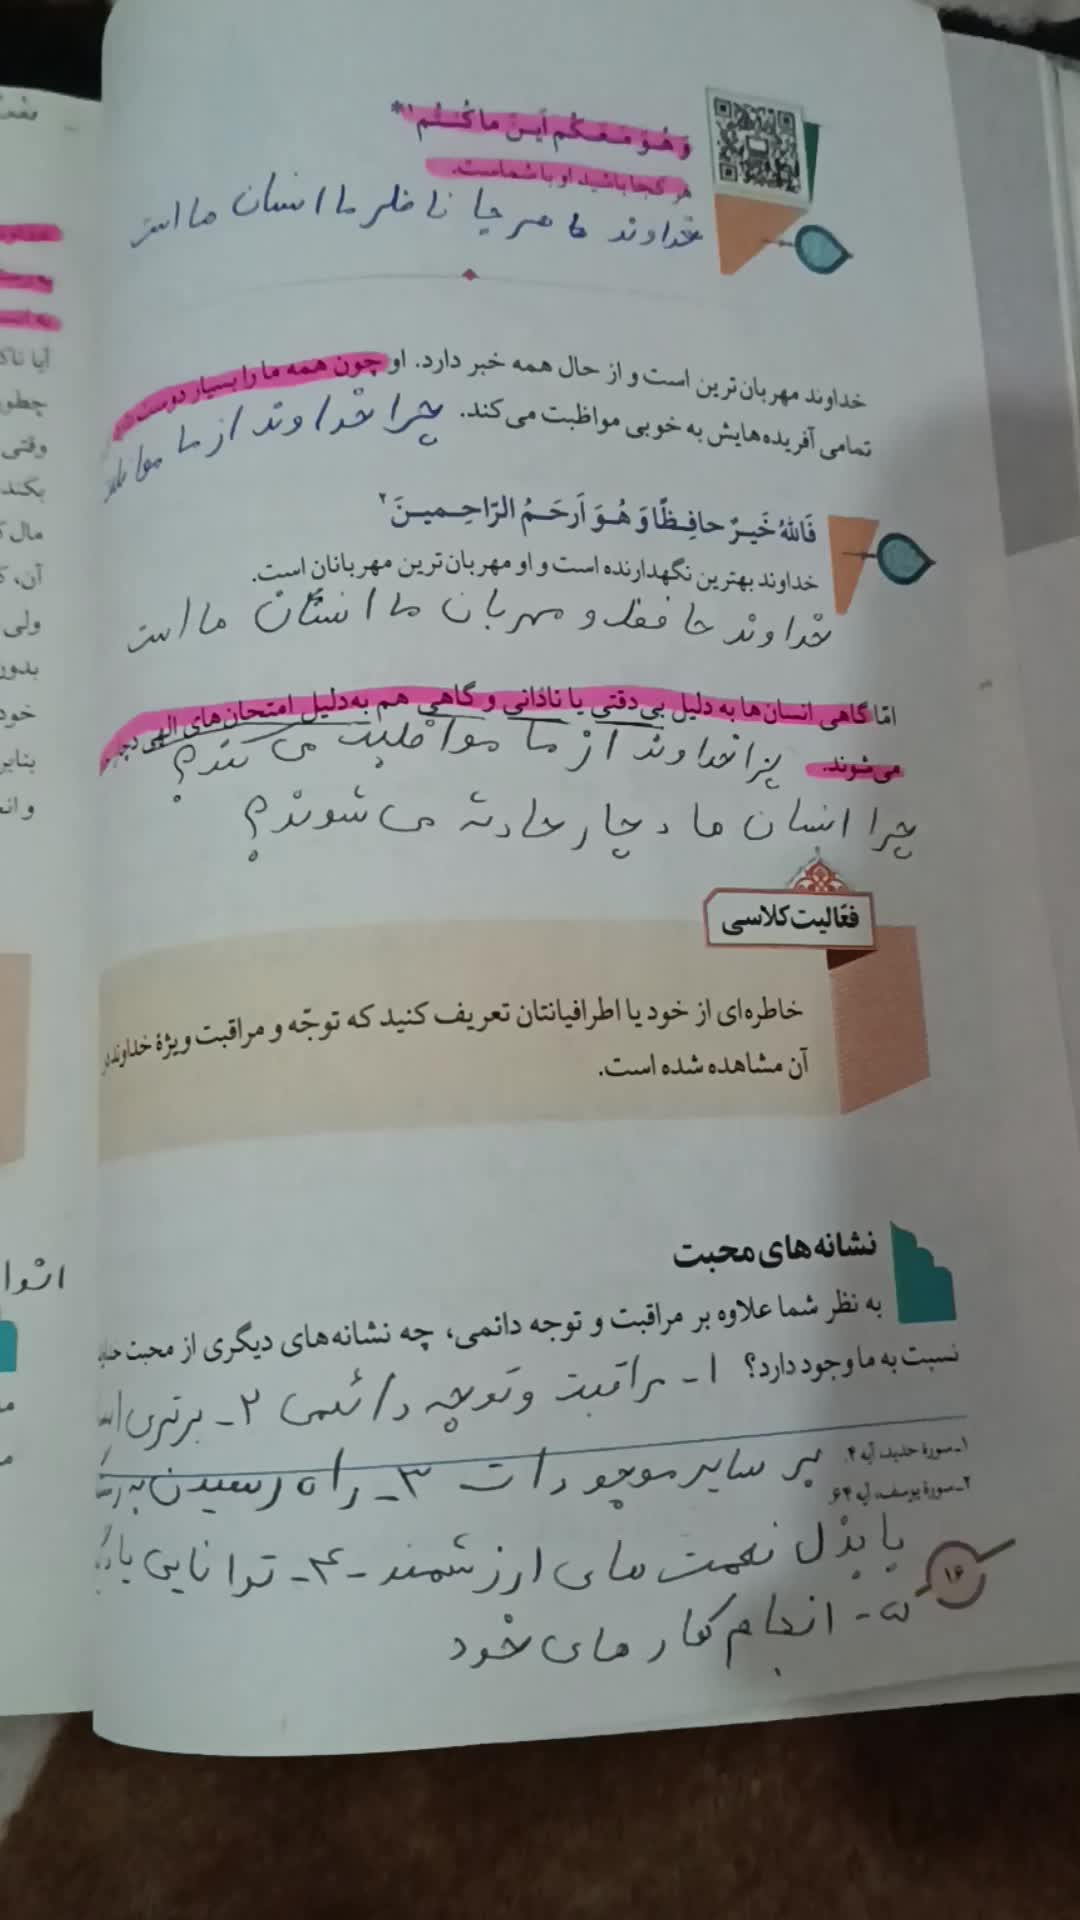 وَ هُوَ مَعَكُم أَينَ ما كُنتُم ۱*
هر کجا باشید او با شماست.
خداوند همه جا ناظر ما انسان ها است
خداوند مهربان‌ترین است و از حال همه خبر دارد. او چون همه ما را بسیار دوست
تمامی آفریده‌هایش به خوبی مواظبت می‌کند.
چرا خداوند از ما
فَاللهُ خَیرٌ حافِظًا وَ هُوَ اَرحَمُ الرّاحِمینَ ۲
خداوند بهترین نگهدارنده است و او مهربان‌ترین مهربانان است.
خداوند حافظ و مهربان ما انسان ها است
امّا گاهی انسان‌ها به دلیل بی‌دقتی یا نادانی و گاهی هم به‌دلیل امتحان‌های الهی
می‌شوند.
چرا خداوند از ما مواظبت می کند؟
چرا انسان ها دچار حادثه می شوند؟
فعّالیت کلاسی
خاطره‌ای از خود یا اطرافیانتان تعریف کنید که توجّه و مراقبت ویژهٔ خداوند در
آن مشاهده شده است.
نشانه‌های محبت
به نظر شما علاوه بر مراقبت و توجه دائمی، چه نشانه‌های دیگری از محبت
نسبت به ما وجود دارد؟
۱- مراقبت و توجه دائمی ۲- برتری
بر سایر موجودات ۳- راه رسیدن به
با بذل نعمت های ارزشمند - ۴- توانایی
۵- انجام کار های خود
۱ـ سورهٔ حدید، آیه ۴.
۲ـ سورهٔ یوسف، آیه ۶۴.
۱۶
آیا
وقتی
ولی
بدون